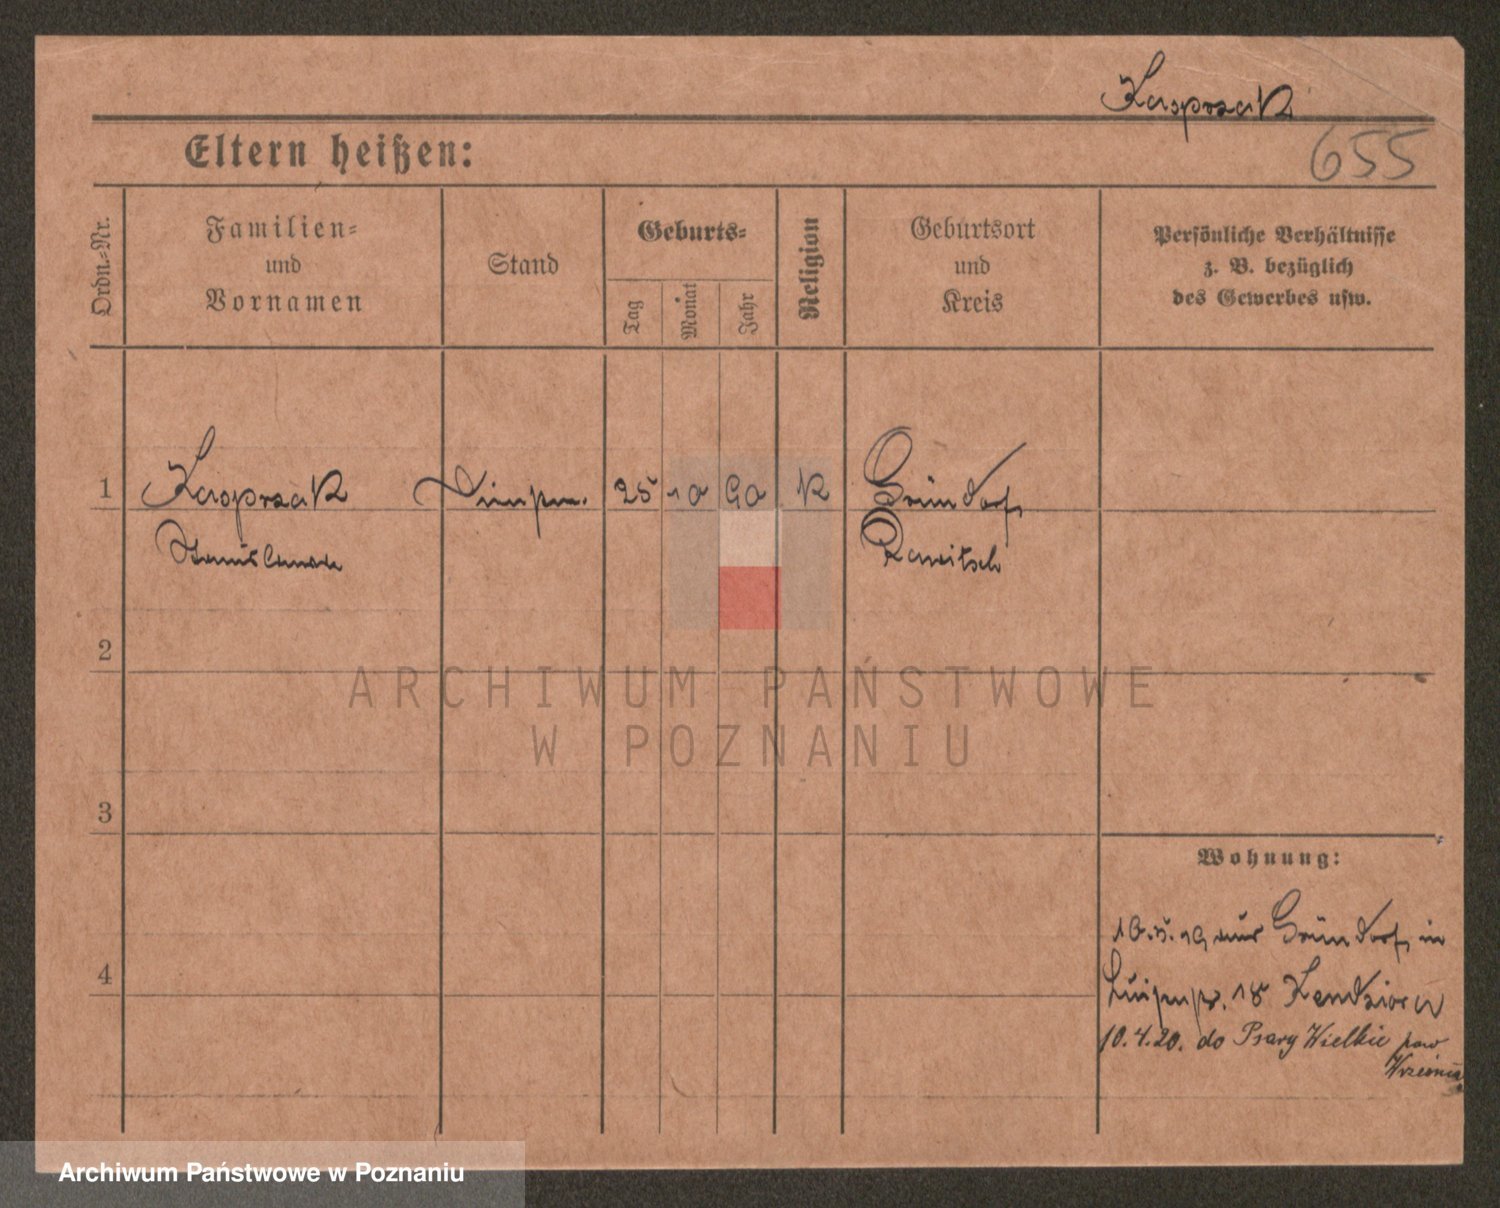 Kasprzak
655
Eltern heißen:
Ordn.-Nr.
Familien-
und
Vornamen
Stand
Geburts-
Tag
Monat
Jahr
Religion
Geburtsort
und
Kreis
Persönliche Verhältnisse
z. B. bezüglich
des Gewerbes usw.
1 Kasprzak 25 10 90 K Gründorf
Stanislawa Rawitsch
2
3
4
ARCHIWUM PAŃSTWOWE
W POZNANIU
Wohnung:
aus Gründorf in
18 Kendziora
10.4.20. do Psary Wielkie pow
Września
Archiwum Państwowe w Poznaniu